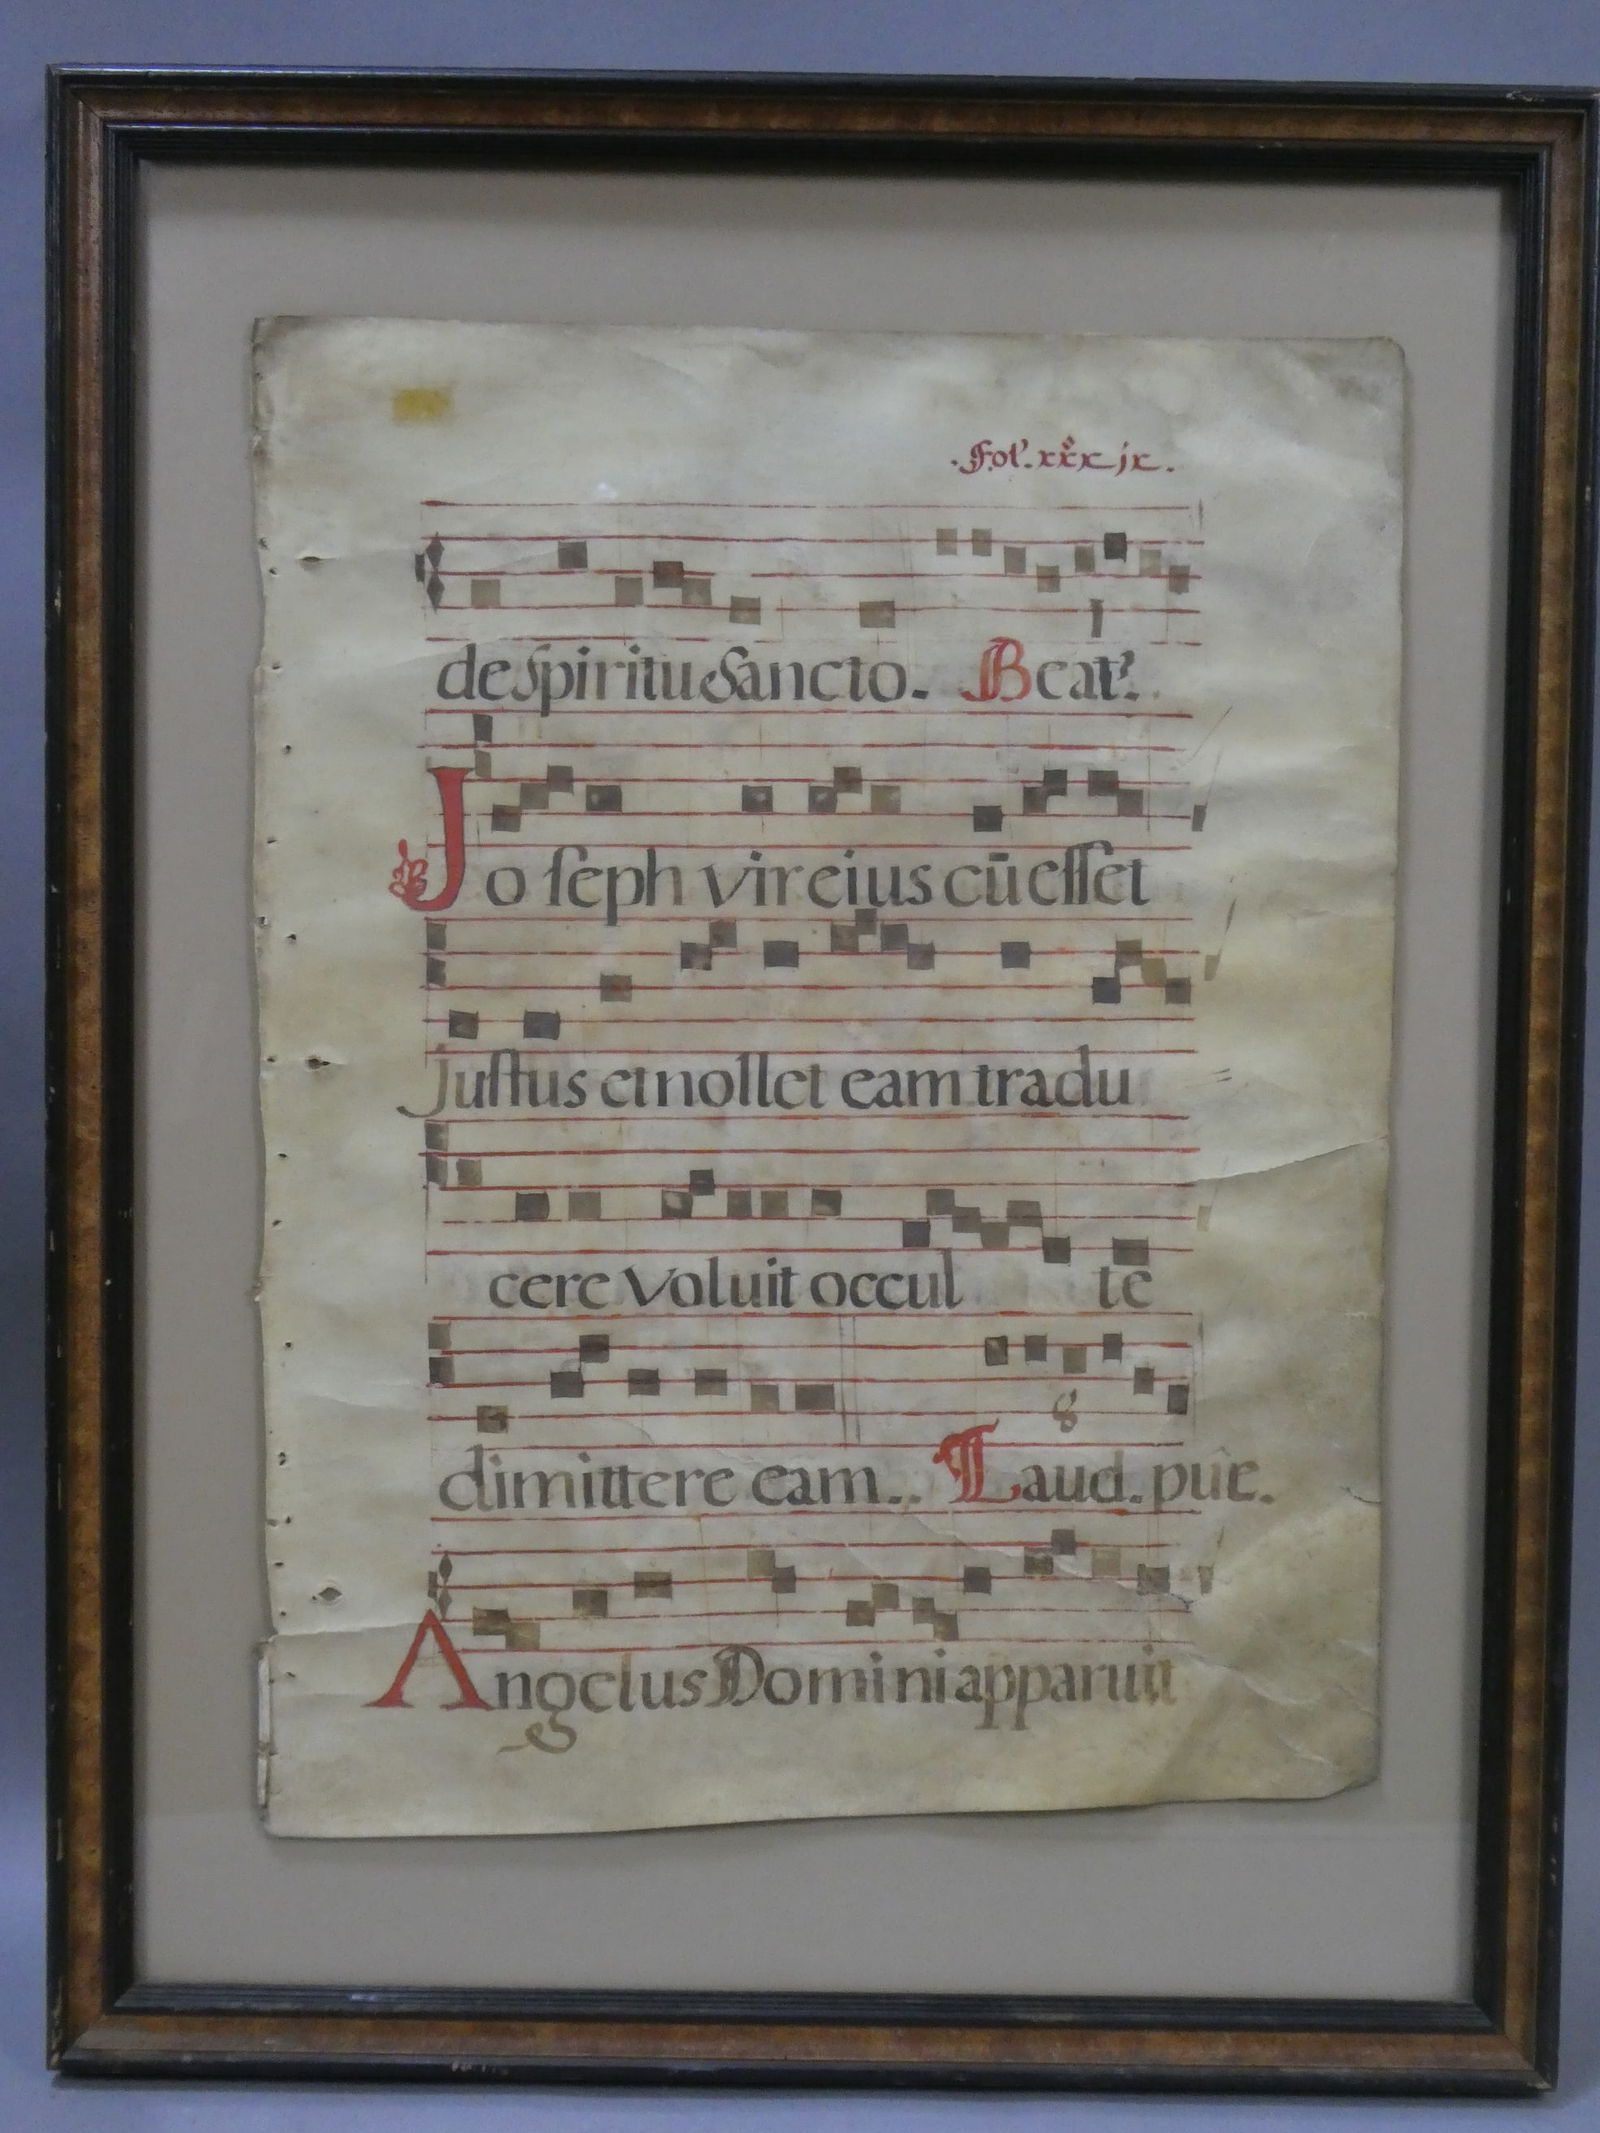 .Fol'. xxxix.
de spiritu Sancto. Beat'.
Jo seph vir eius cū esset
justus et nollet eam tradu
cere voluit occul te
dimittere eam.. Laud. pue.
8
Angelus Domini apparuit